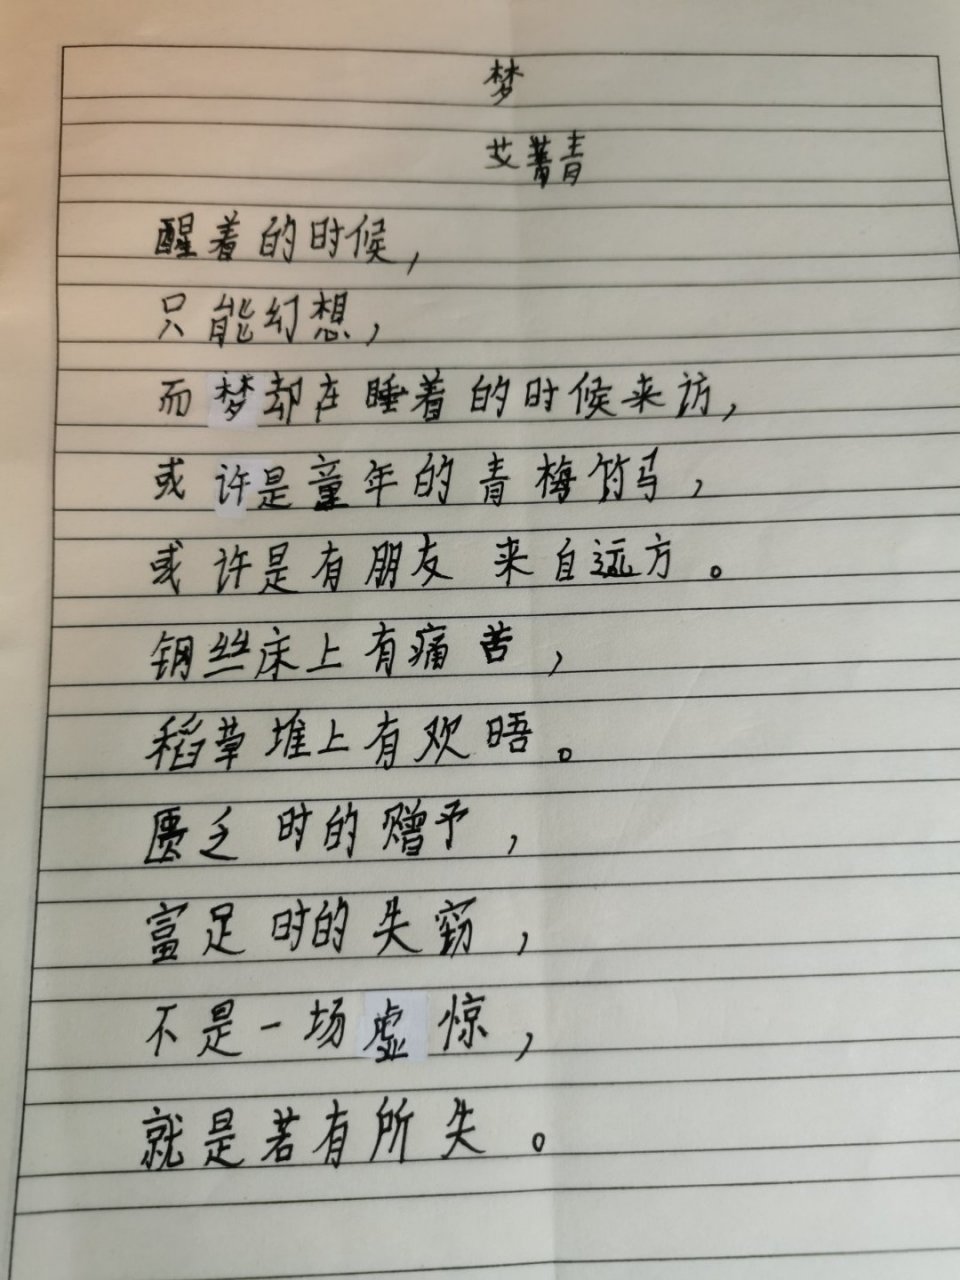 梦
艾菁青
醒着的时候，
只能幻想，
而梦却在睡着的时候来访，
或许是童年的青梅竹马，
或许是有朋友来自远方。
钢丝床上有痛苦，
稻草堆上有欢晤。
匮乏时的赠予，
富足时的失窃，
不是一场虚惊，
就是若有所失。